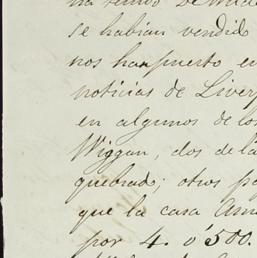 ha tenido
se habian vendido
nos han puesto en
noticias de Liverp
en algunos de los
Wiggan, dos de la
quebrado; otros p
que la casa Am
por 4. o' 500.